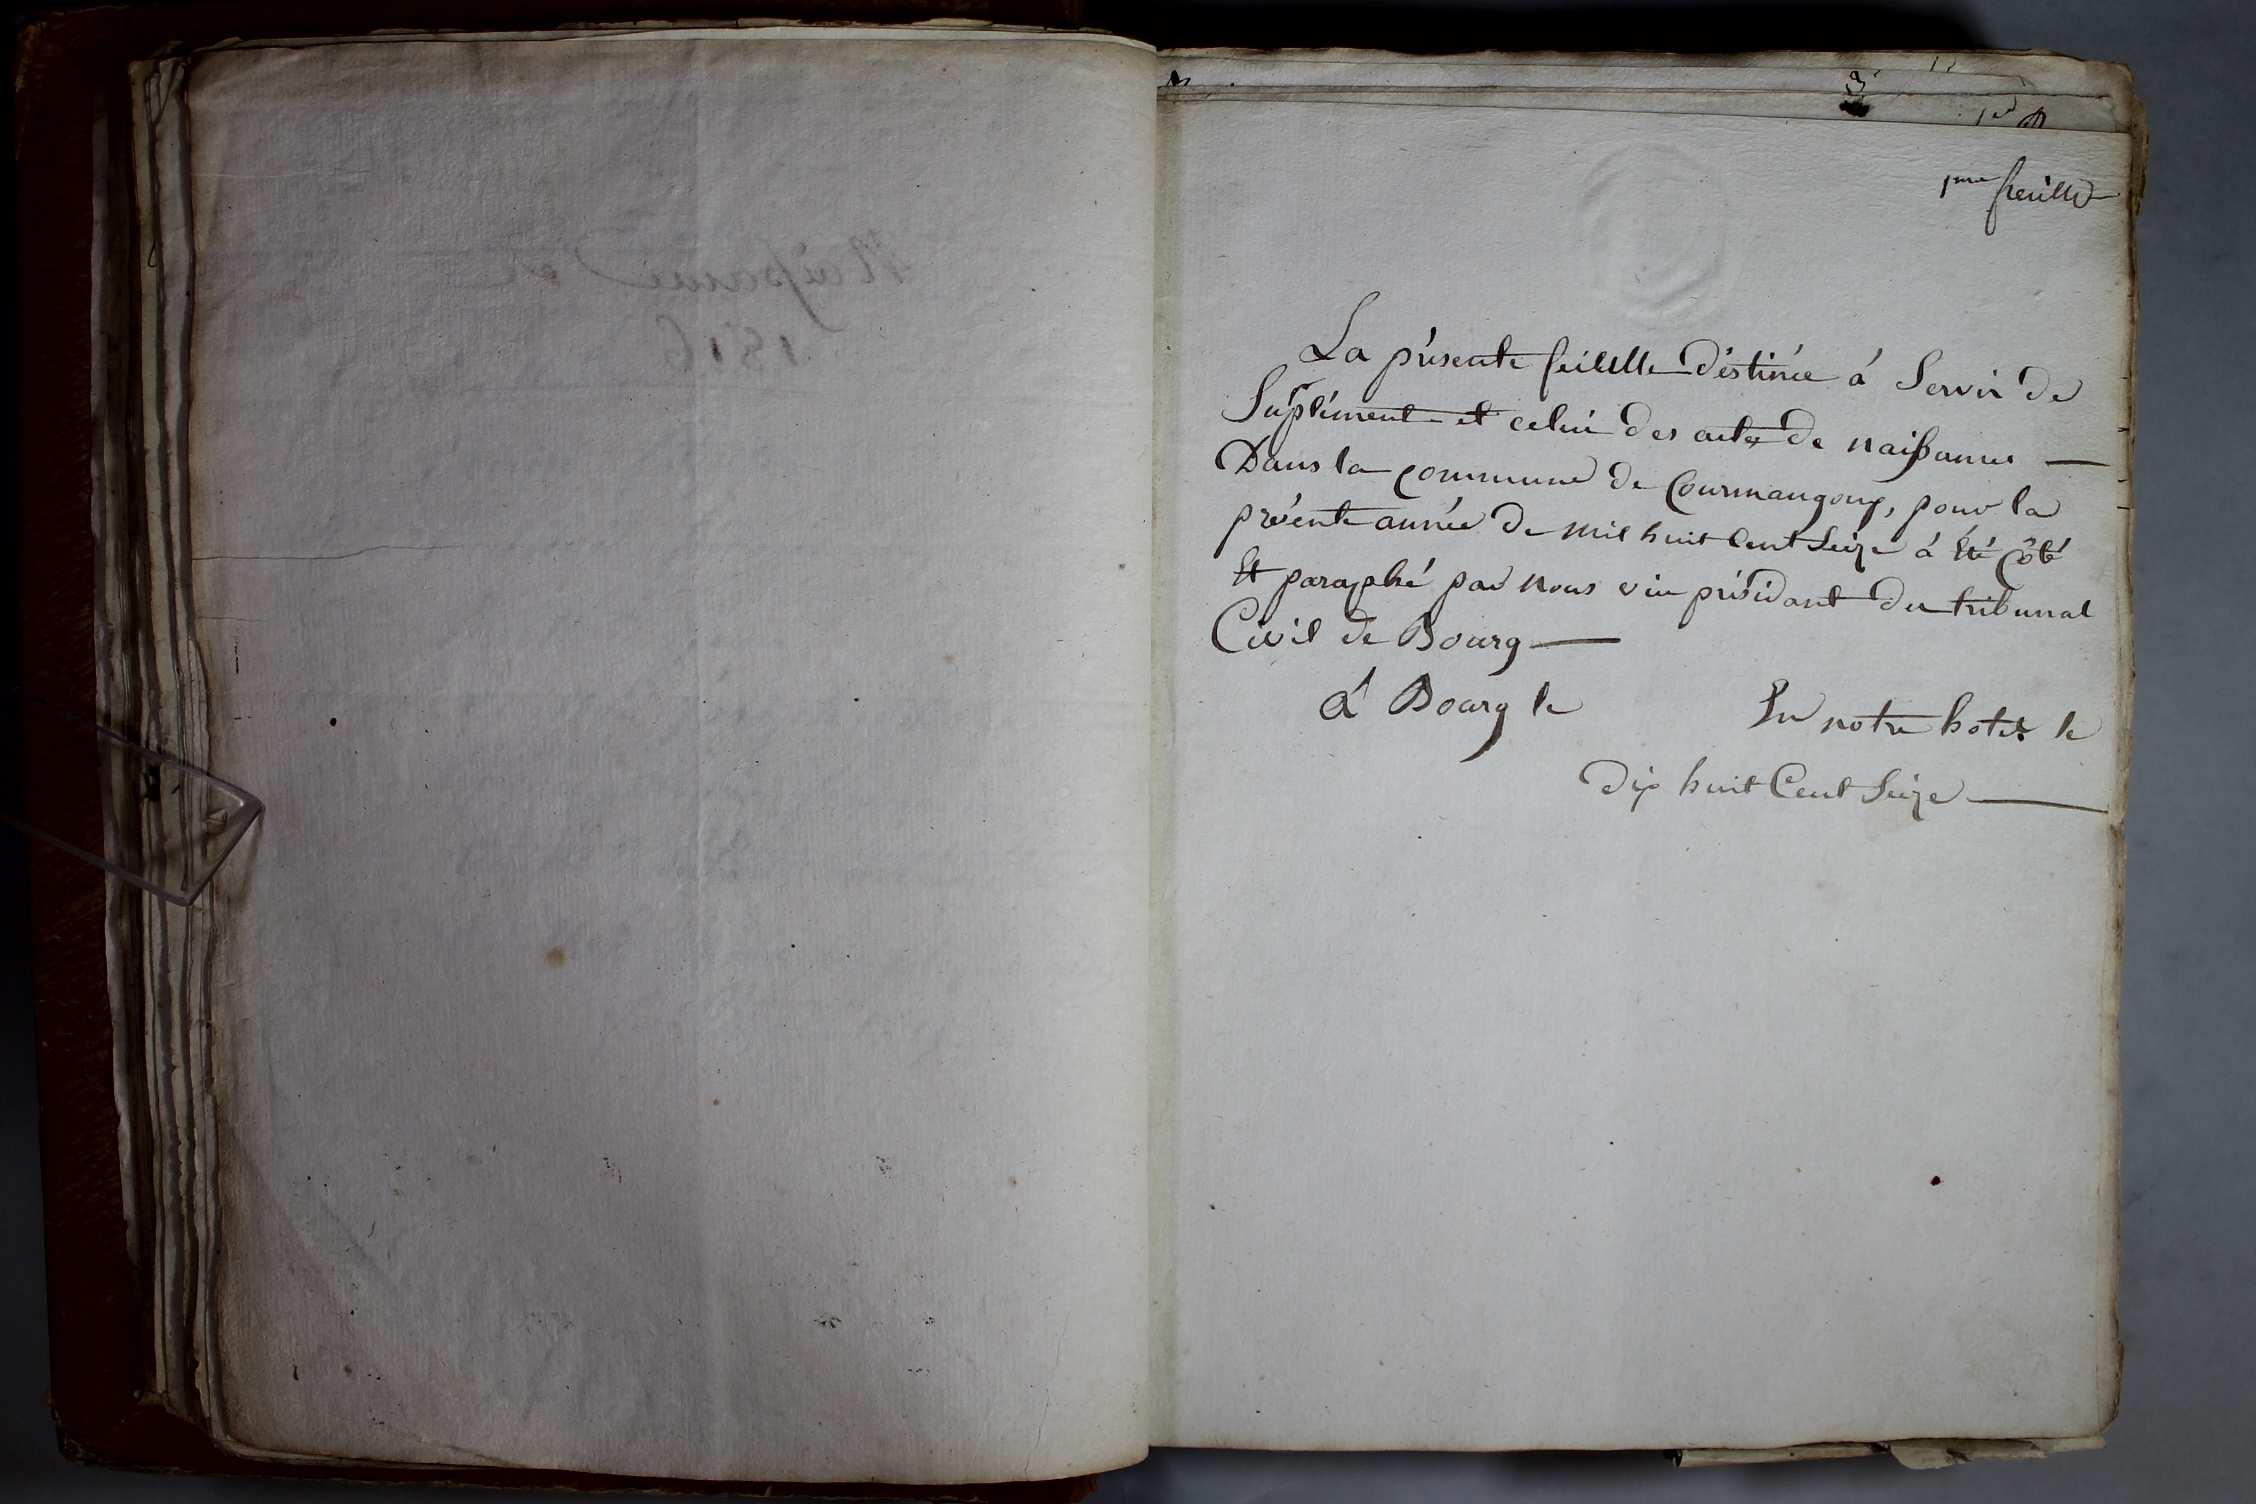 1ere feuille
La présente feuille déstinée á Servir de
Suplément et celui des actes de naissances —
Dans la commune de Courmangoux, pour la
présente année de mil huit Cent Seize á été Côté
Et paraphé par nous vice présidant du tribunal
Civil de Bourg —
á Bourg le En notre hotel le
dix huit Cent Seize —
Naissance
1816